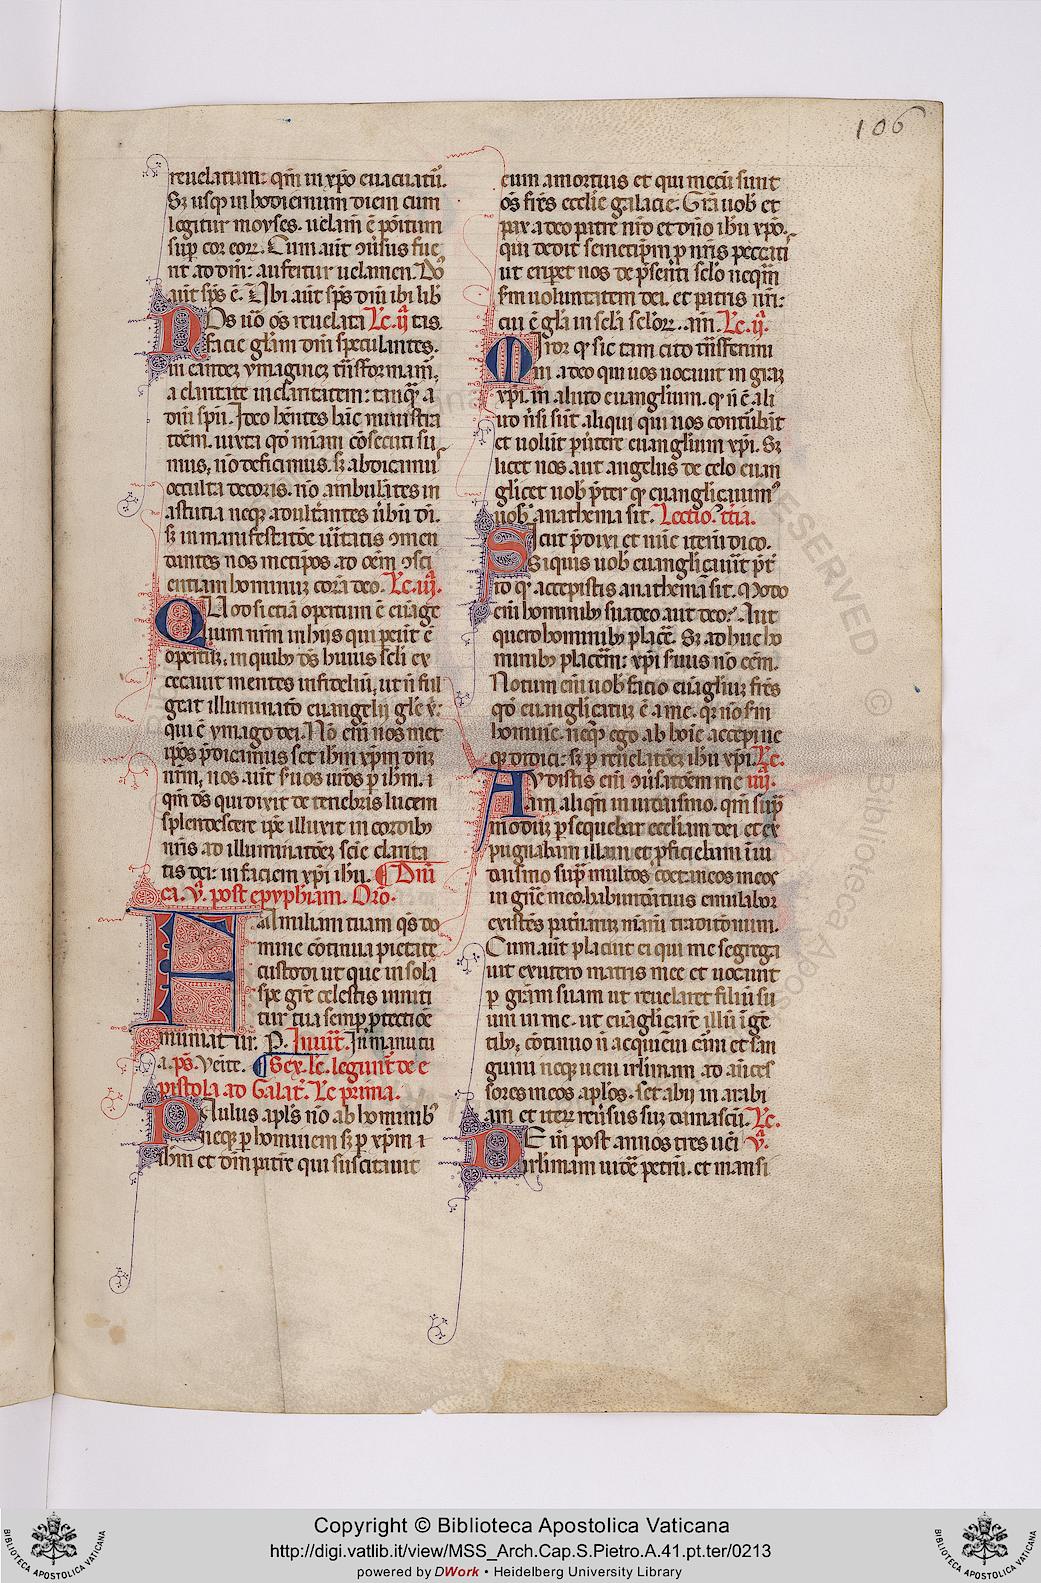 106
reuelatum: qm̄ in xp̄o euacuatū.
Sȝ usqȝ in hodiernum diem cum
legitur moyses. uelam̄ ē poītum
sup cor eoꝝ. Cum aūt ɔūsus fue
rit ad dm̄: aufertur uelamen. Dn̄s
aūt sp̄s ē. Ubi aūt sp̄s dm̄ ibi lib̄
Nos ūo om̄s reuelata Lc. ij. tas.
facie glām dn̄i speculantes.
in eandeȝ ymagineȝ trāsformam̄,
a claritate in claritatem: tanqȝ a
dn̄i spū. Ideo hēntes hāc ministra
tōem. iuxta qd̄ mīam cōsecuti su
mus, nō deficimus. sȝ abdicamus
occulta decoris. nō ambulātes in
astutia neqȝ adultāntes ūbū dī.
sȝ in manifestatōe ūitatis ɔmen
dantes nos metip̄os. ad oēm ɔsci
entiam hominuȝ corā deo. Lc. iij.
Quod si etiā opertum ē euāge
lium nr̄m in hijs qui pereūt ē
opertuȝ. in quibȝ ds̄ huius scl̄i ex
cecauit mentes infideliū, ut n̄ ful
geat illuminatō euangelij glē x̄.
qui ē ymago dei. Nō em̄ nos met
ip̄os p̄dicamus set ihm̄ xp̄m dn̄ȝ
nr̄m, nos aūt s̄uos ur̄os p ihm̄.
qm̄ ds̄ qui dixit de tenebris lucem
splendescere ip̄e illuxit in cordibȝ
nr̄is ad illuminatōeȝ scīe clarita
tis dei: in faciem xp̄i ihū. ¶ Dn̄i
ca. v̄. post epyphiam. Oro.
Familiam tuam qs̄ do
mine cōtinua pietate
custodi ut que in sola
spe grē celestis inniti
tur tua semp ptectiōe
muniatur. P. Inuit. In manu tu
a. ps̄. Venite. ¶ Sex lc̄. legunt̄ de e
pistola ad Galat̄. Lc prima.
Paulus apl̄s nō ab hominibȝ
neqȝ p hominem sȝ p xp̄m
ihm̄ et dm̄ pat̄re qui suscitauit
eum a mortuis et qui mecū sunt
om̄s fr̄es eccl̄ie galacie. Grā uob̄ et
pax a deo patre nr̄o et dn̄o ihū xp̄o.
qui dedit semetip̄m p nr̄is peccatis
ut eriperet nos de p̄senti scl̄o neqm̄
s̄m uoluntatem dei. et patris nr̄i:
cui ē glā in scl̄a scl̄oꝝ. am̄. Lc. ij.
Miror qȝ sic tam cito trāsferimi
ni a deo qui uos uocauit in grāȝ
xp̄i. in aliud euanglium. qȝ n̄ ē ali
ud nisi sunt aliqui qui uos conturbāt
et uolūt puertere euanglium xp̄i. Sȝ
licet nos aut angelus de celo euan
glicet uob̄ p̄ter qȝ euanglicauimus
uob̄ anathema sit. Lectio. tertia.
Sicut p̄dixi et nūc iterū dico.
Si quis uob̄ euanglicauit p̄t
id qȝ accepistis anathema sit. Modo
em̄ hominibȝ suadeo aut deo? Aut
quero hominibȝ placēe. Sȝ adhuc ho
minibȝ placerem: xp̄i s̄uus nō eēm.
Notum em̄ uob̄ facio euāgliuȝ fr̄es
qd̄ euanglicatuȝ ē a me. qȝ nō s̄m
hominē. neqȝ ego ab hoīe accepi ne
qȝ didici: sȝ p reuelatōeȝ ihū xp̄i. Lc.
Audistis em̄ ɔūsatōem me iiij.
am aliqn̄ in iudaismo. qm̄ sup
moduȝ psequebar eccl̄iam dei et ex
pugnabam illam et pficiebam in iu
daismo sup̄ multos coetaneos meos
in gn̄e meo. habundātius emulator
existēs paternaꝝ mearū traditionum.
Cum aūt placuit ei qui me segrega
uit ex utero matris mee et uocauit
p grām suam ut reuelaret filiū su
um in me. ut euāglicarē illū ī gē
tibȝ, cōtinuo n̄ acquieui carni et san
guini neqȝ ueni irl̄imam ad anteces
sores meos apl̄os. set abij in arabi
am et iteꝝ reūsus suȝ damascū. Lc.
Dein post annos tres uēi v̄.
irl̄imam uidē petrū. et mansi
Copyright © Biblioteca Apostolica Vaticana
http://digi.vatlib.it/view/MSS_Arch.Cap.S.Pietro.A.41.pt.ter/0213
powered by DWork • Heidelberg University Library